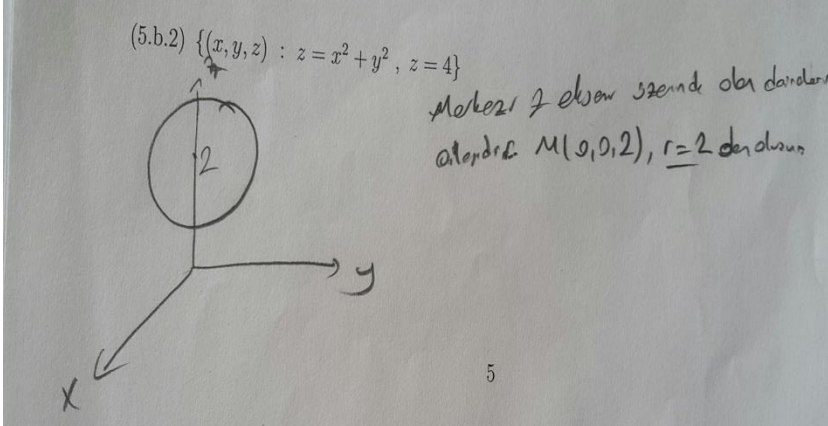 (5.b.2) {(x, y, z) : z = x² + y² , z = 4}
Merkezi z ekseni üzerinde olan daireler
M(0,0,2), r=2 den olsun
z
2
y
x
5